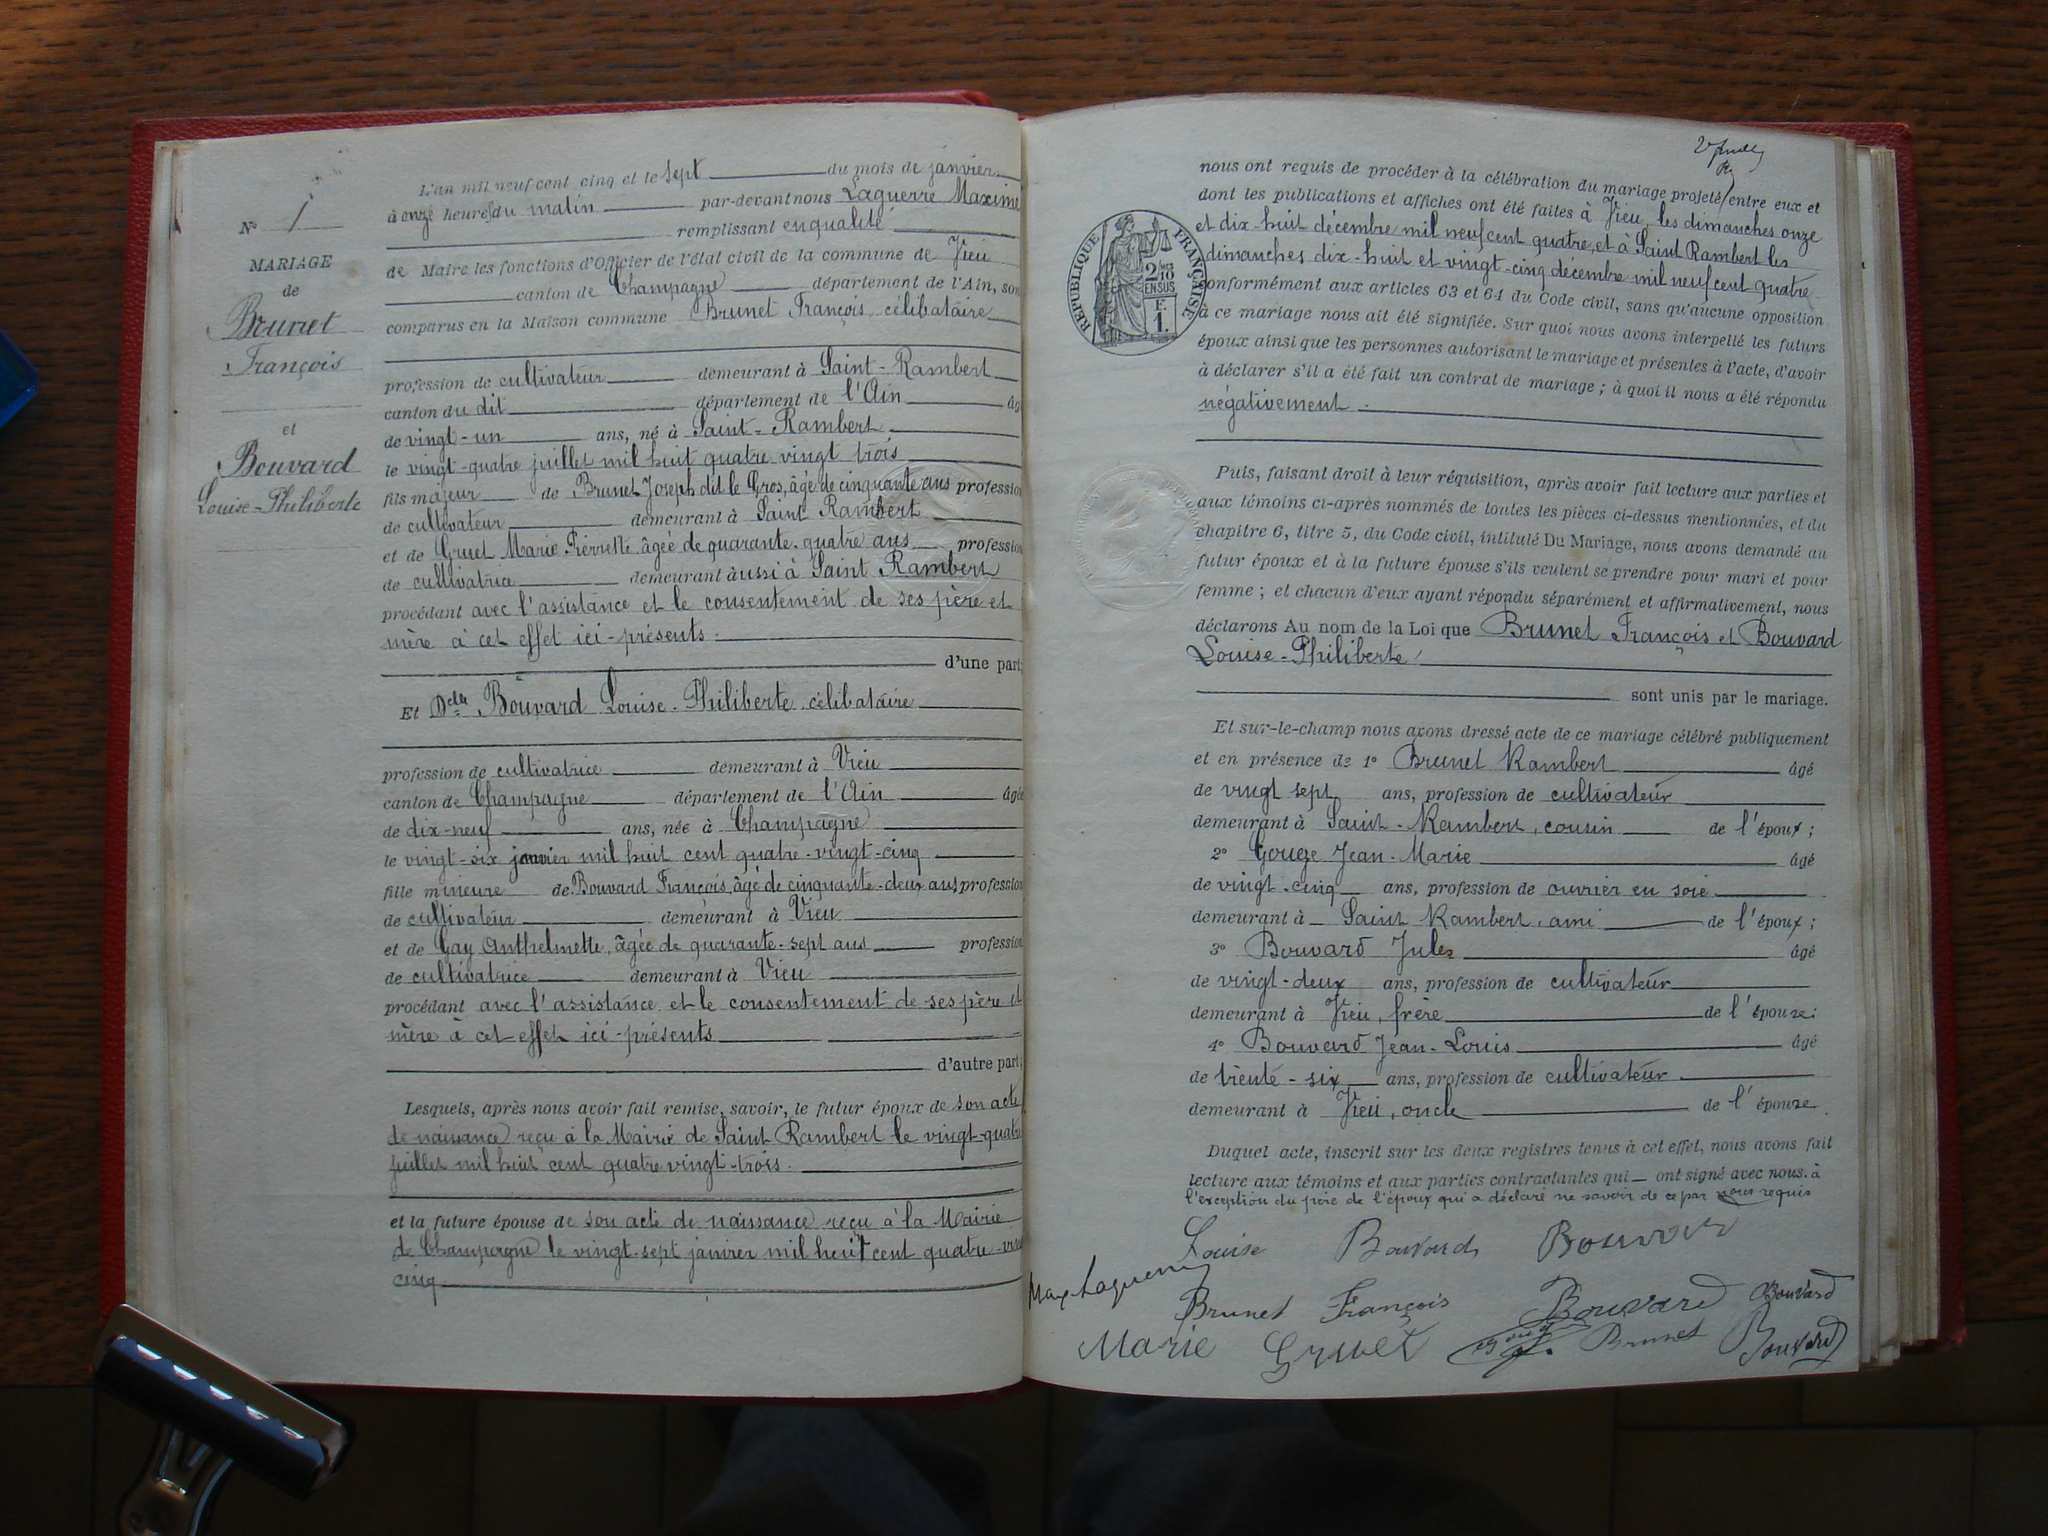 N° 1
MARIAGE
de
Brunet
François
et
Bouvard
Louise-Philiberte
L'an mil neuf cent cinq et le sept du mois de janvier
à onze heures du matin par-devant nous Laguerre Maxime
remplissant en qualité
de Maire les fonctions d'Officier de l'état civil de la commune de Vieu
canton de Champagne département de l'Ain, son
comparus en la Maison commune Brunet François, célibataire
profession de cultivateur demeurant à Saint-Rambert
canton du dit département de l'Ain âg
de vingt-un ans, né à Saint-Rambert
le vingt-quatre juillet mil huit quatre-vingt trois
fils majeur de Brunet Joseph dit le Gros, âgé de cinquante ans profession
de cultivateur demeurant à Saint Rambert
et de Gruet Marie Pierrette âgée de quarante-quatre ans profession
de cultivatrice demeurant aussi à Saint Rambert
procédant avec l'assistance et le consentement de ses père et
mère à cet effet ici-présents.
d'une part;
Et Delle Bouvard Louise-Philiberte célibataire
profession de cultivatrice demeurant à Vieu
canton de Champagne département de l'Ain âgée
de dix-neuf ans, née à Champagne
le vingt-six janvier mil huit cent quatre-vingt-cinq
fille mineure de Bouvard François, âgé de cinquante-deux ans, profession
de cultivateur demeurant à Vieu
et de Gay Anthelmette, âgée de quarante-sept ans profession
de cultivatrice demeurant à Vieu
procédant avec l'assistance et le consentement de ses père et
mère à cet effet ici-présents
d'autre part;
Lesquels, après nous avoir fait remise, savoir, le futur époux de son acte
de naissance reçu à la Mairie de Saint Rambert le vingt-quatre
juillet mil huit cent quatre vingt-trois.
et la future épouse de son acte de naissance reçu à la Mairie
de Champagne le vingt-sept janvier mil huit cent quatre-ving
cinq
RÉPUBLIQUE FRANÇAISE
2 10es
EN SUS
F.
1.
nous ont requis de procéder à la célébration du mariage projeté entre eux et
dont les publications et affiches ont été faites à Vieu, les dimanches onze
et dix-huit décembre mil neuf cent quatre, et à Saint Rambert les
dimanches dix-huit et vingt-cinq décembre mil neuf cent quatre
conformément aux articles 63 et 64 du Code civil, sans qu'aucune opposition
à ce mariage nous ait été signifiée. Sur quoi nous avons interpellé les futurs
époux ainsi que les personnes autorisant le mariage et présentes à l'acte, d'avoir
à déclarer s'il a été fait un contrat de mariage; à quoi il nous a été répondu
négativement.
Puis, faisant droit à leur réquisition, après avoir fait lecture aux parties et
aux témoins ci-après nommés de toutes les pièces ci-dessus mentionnées, et du
chapitre 6, titre 5, du Code civil, intitulé Du Mariage, nous avons demandé au
futur époux et à la future épouse s'ils veulent se prendre pour mari et pour
femme; et chacun d'eux ayant répondu séparément et affirmativement, nous
déclarons Au nom de la Loi que Brunet François et Bouvard
Louise-Philiberte
sont unis par le mariage.
Et sur-le-champ nous avons dressé acte de ce mariage célébré publiquement
et en présence de 1° Brunet Rambert âgé
de vingt sept ans, profession de cultivateur
demeurant à Saint-Rambert, cousin de l'époux;
2° Gouge Jean-Marie âgé
de vingt-cinq ans, profession de ouvrier en soie
demeurant à Saint Rambert, ami de l'époux;
3° Bouvard Jules âgé
de vingt-deux ans, profession de cultivateur
demeurant à Vieu, frère de l'épouse;
4° Bouvard Jean-Louis âgé
de trente-six ans, profession de cultivateur
demeurant à Vieu, oncle de l'épouse.
Duquel acte, inscrit sur les deux registres tenus à cet effet, nous avons fait
lecture aux témoins et aux parties contractantes qui ont signé avec nous. à
l'exception du père de l'époux qui a déclaré ne savoir de ce par nous requis
Louise Bouvard Bouvard
Max Laguerre
Brunet François Bouvard Bouvard
Marie Gruet Brunet Bouvard